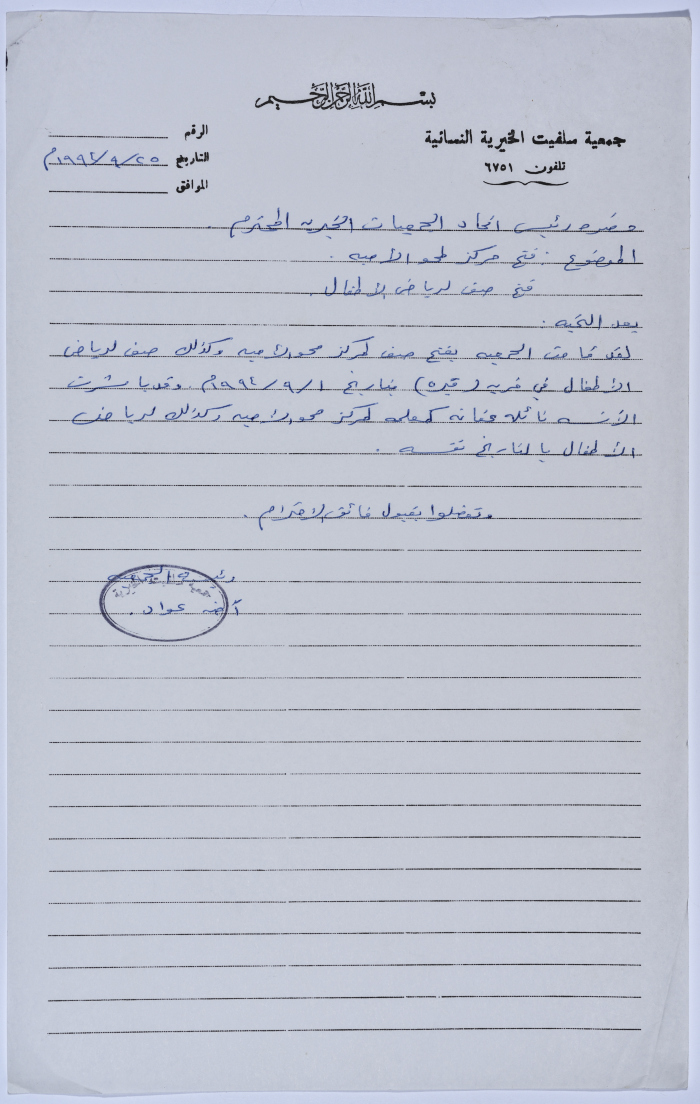 بسم الله الرحمن الرحيم
جمعية سلفيت الخيرية النسائية
تلفون ٦٧٥١
الرقم
التاريخ ٢٥/٩/١٩٩٤م
الموافق
حضرة رئيس اتحاد الجمعيات الخيرية المحترم .
الموضوع : فتح مركز محو الأمية .
فتح صف لرياض الأطفال
بعد التحية .
لقد قامت الجمعية بفتح صف لمركز محو الأمية وكذلك صف لرياض
الأطفال في قرية ( قيرة ) بتاريخ ١/٩/١٩٩٤م وقد باشرت
الآنسة نائلة عفانة كمعلمة لمركز محو الأمية وكذلك لرياض
الأطفال بالتاريخ نفسه .
وتفضلوا بقبول فائق الاحترام .
رئيسة الجمعية
عواد .